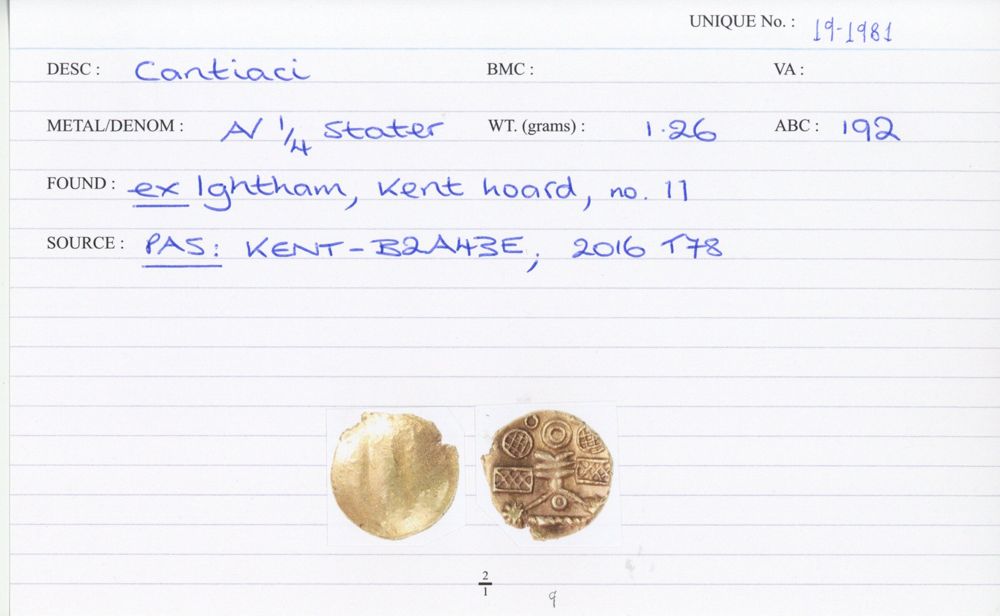 UNIQUE No. : 19-1981
DESC : Cantiaci BMC : VA :
METAL/DENOM : AV 1/4 Stater WT. (grams) : 1.26 ABC : 192
FOUND : ex Ightham, Kent hoard, no. 11
SOURCE : PAS: KENT-B2A43E; 2016 T78
2/1
9